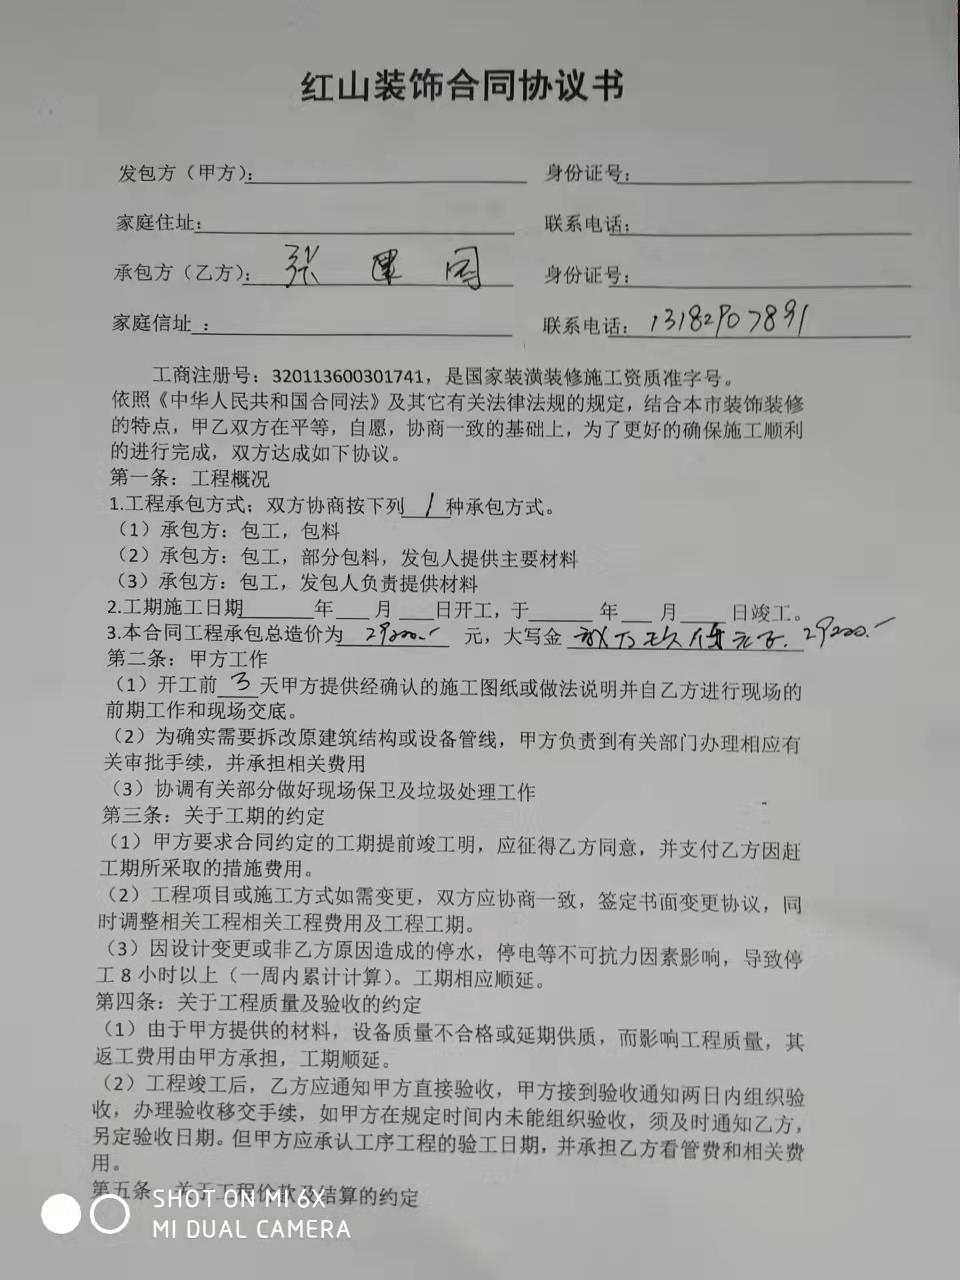 红山装饰合同协议书
发包方（甲方）： 身份证号：
家庭住址： 联系电话：
承包方（乙方）： 张建国 身份证号：
家庭信址 ： 联系电话： 13182907891
工商注册号：320113600301741，是国家装潢装修施工资质准字号。
依照《中华人民共和国合同法》及其它有关法律法规的规定，结合本市装饰装修
的特点，甲乙双方在平等，自愿，协商一致的基础上，为了更好的确保施工顺利
的进行完成，双方达成如下协议。
第一条：工程概况
1.工程承包方式；双方协商按下列 1 种承包方式。
（1）承包方：包工，包料
（2）承包方：包工，部分包料，发包人提供主要材料
（3）承包方：包工，发包人负责提供材料
2.工期施工日期 年 月 日开工，于 年 月 日竣工。
3.本合同工程承包总造价为 29200.- 元，大写金 29200.-
第二条：甲方工作
（1）开工前 3 天甲方提供经确认的施工图纸或做法说明并自乙方进行现场的
前期工作和现场交底。
（2）为确实需要拆改原建筑结构或设备管线，甲方负责到有关部门办理相应有
关审批手续，并承担相关费用
（3）协调有关部分做好现场保卫及垃圾处理工作
第三条：关于工期的约定
（1）甲方要求合同约定的工期提前竣工明，应征得乙方同意，并支付乙方因赶
工期所采取的措施费用。
（2）工程项目或施工方式如需变更，双方应协商一致，签定书面变更协议，同
时调整相关工程相关工程费用及工程工期。
（3）因设计变更或非乙方原因造成的停水，停电等不可抗力因素影响，导致停
工 8 小时以上（一周内累计计算）。工期相应顺延。
第四条：关于工程质量及验收的约定
（1）由于甲方提供的材料，设备质量不合格或延期供质，而影响工程质量，其
返工费用由甲方承担，工期顺延。
（2）工程竣工后，乙方应通知甲方直接验收，甲方接到验收通知两日内组织验
收，办理验收移交手续，如甲方在规定时间内未能组织验收，须及时通知乙方，
另定验收日期。但甲方应承认工序工程的验工日期，并承担乙方看管费和相关费
用。
第五条：关于工程价款及结算的约定
SHOT ON MI 6X
MI DUAL CAMERA